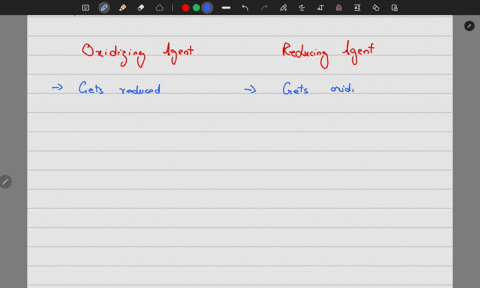 Oxidizing Agent Reducing Agent
→ Gets reduced → Gets oxidi